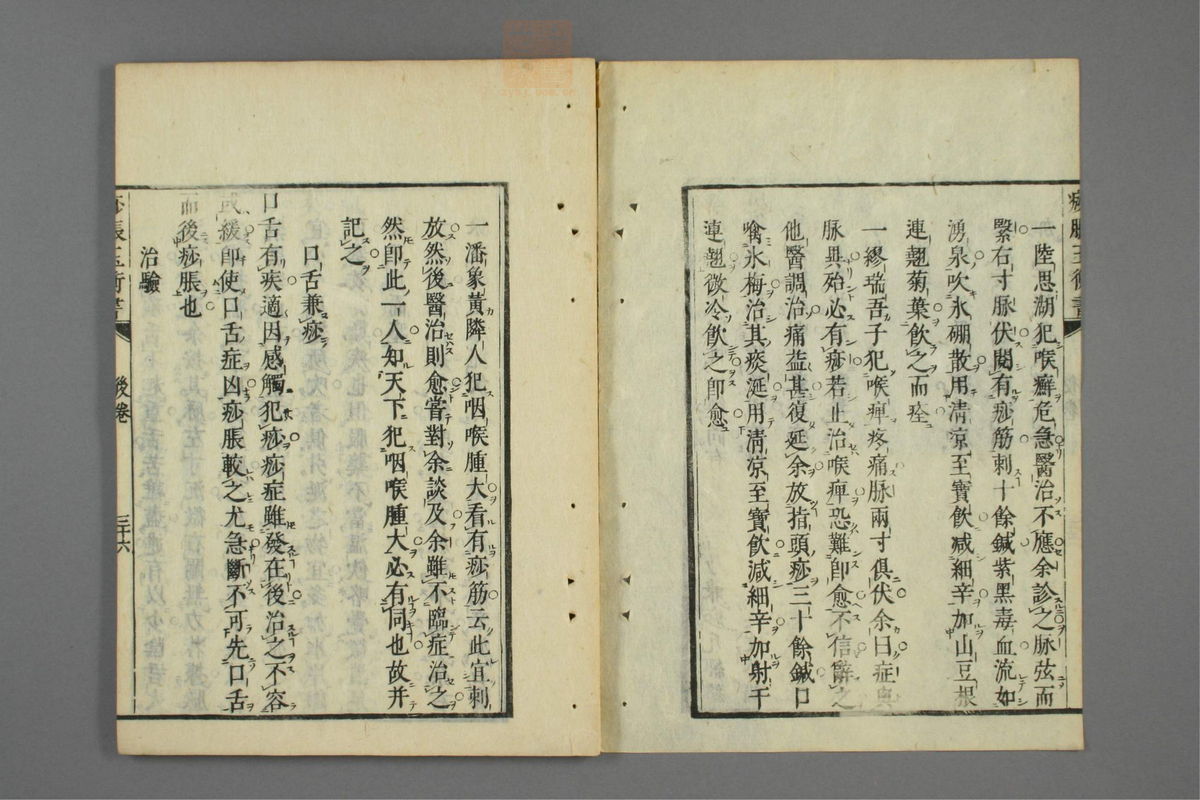 痧脹玉衡書
一陸思湖犯喉癬危急醫治不應余診之脉弦而
緊右寸脉伏閱有痧筋刺十餘鍼紫黑毒血流如
湧泉吹氷硼散用清凉至寶飲減細辛加山豆根
連翹菊葉飲之而痊
一繆瑞吾子犯喉痺疼痛脉兩寸俱伏余曰症與
脉異殆必有痧若止治喉痺恐難即愈不信辭之
他醫調治痛益甚復延余放指頭痧三十餘鍼口
噙氷梅治其痰涎用清凉至寶飲減細辛加射干
連翹微冷飲之即愈
一潘象黃隣人犯咽喉腫大看有痧筋云此宜刺
放然後醫治則愈嘗對余談及余雖不臨症治之
然即此一人知天下犯咽喉腫大必有同也故并
記之
口舌兼痧
口舌有疾適因感觸犯痧痧症雖發在後治之不容
或緩即使口舌症凶痧脹較之尤急斷不可先口舌
而後痧脹也
治驗
痧脹玉衡書
後卷
三十六